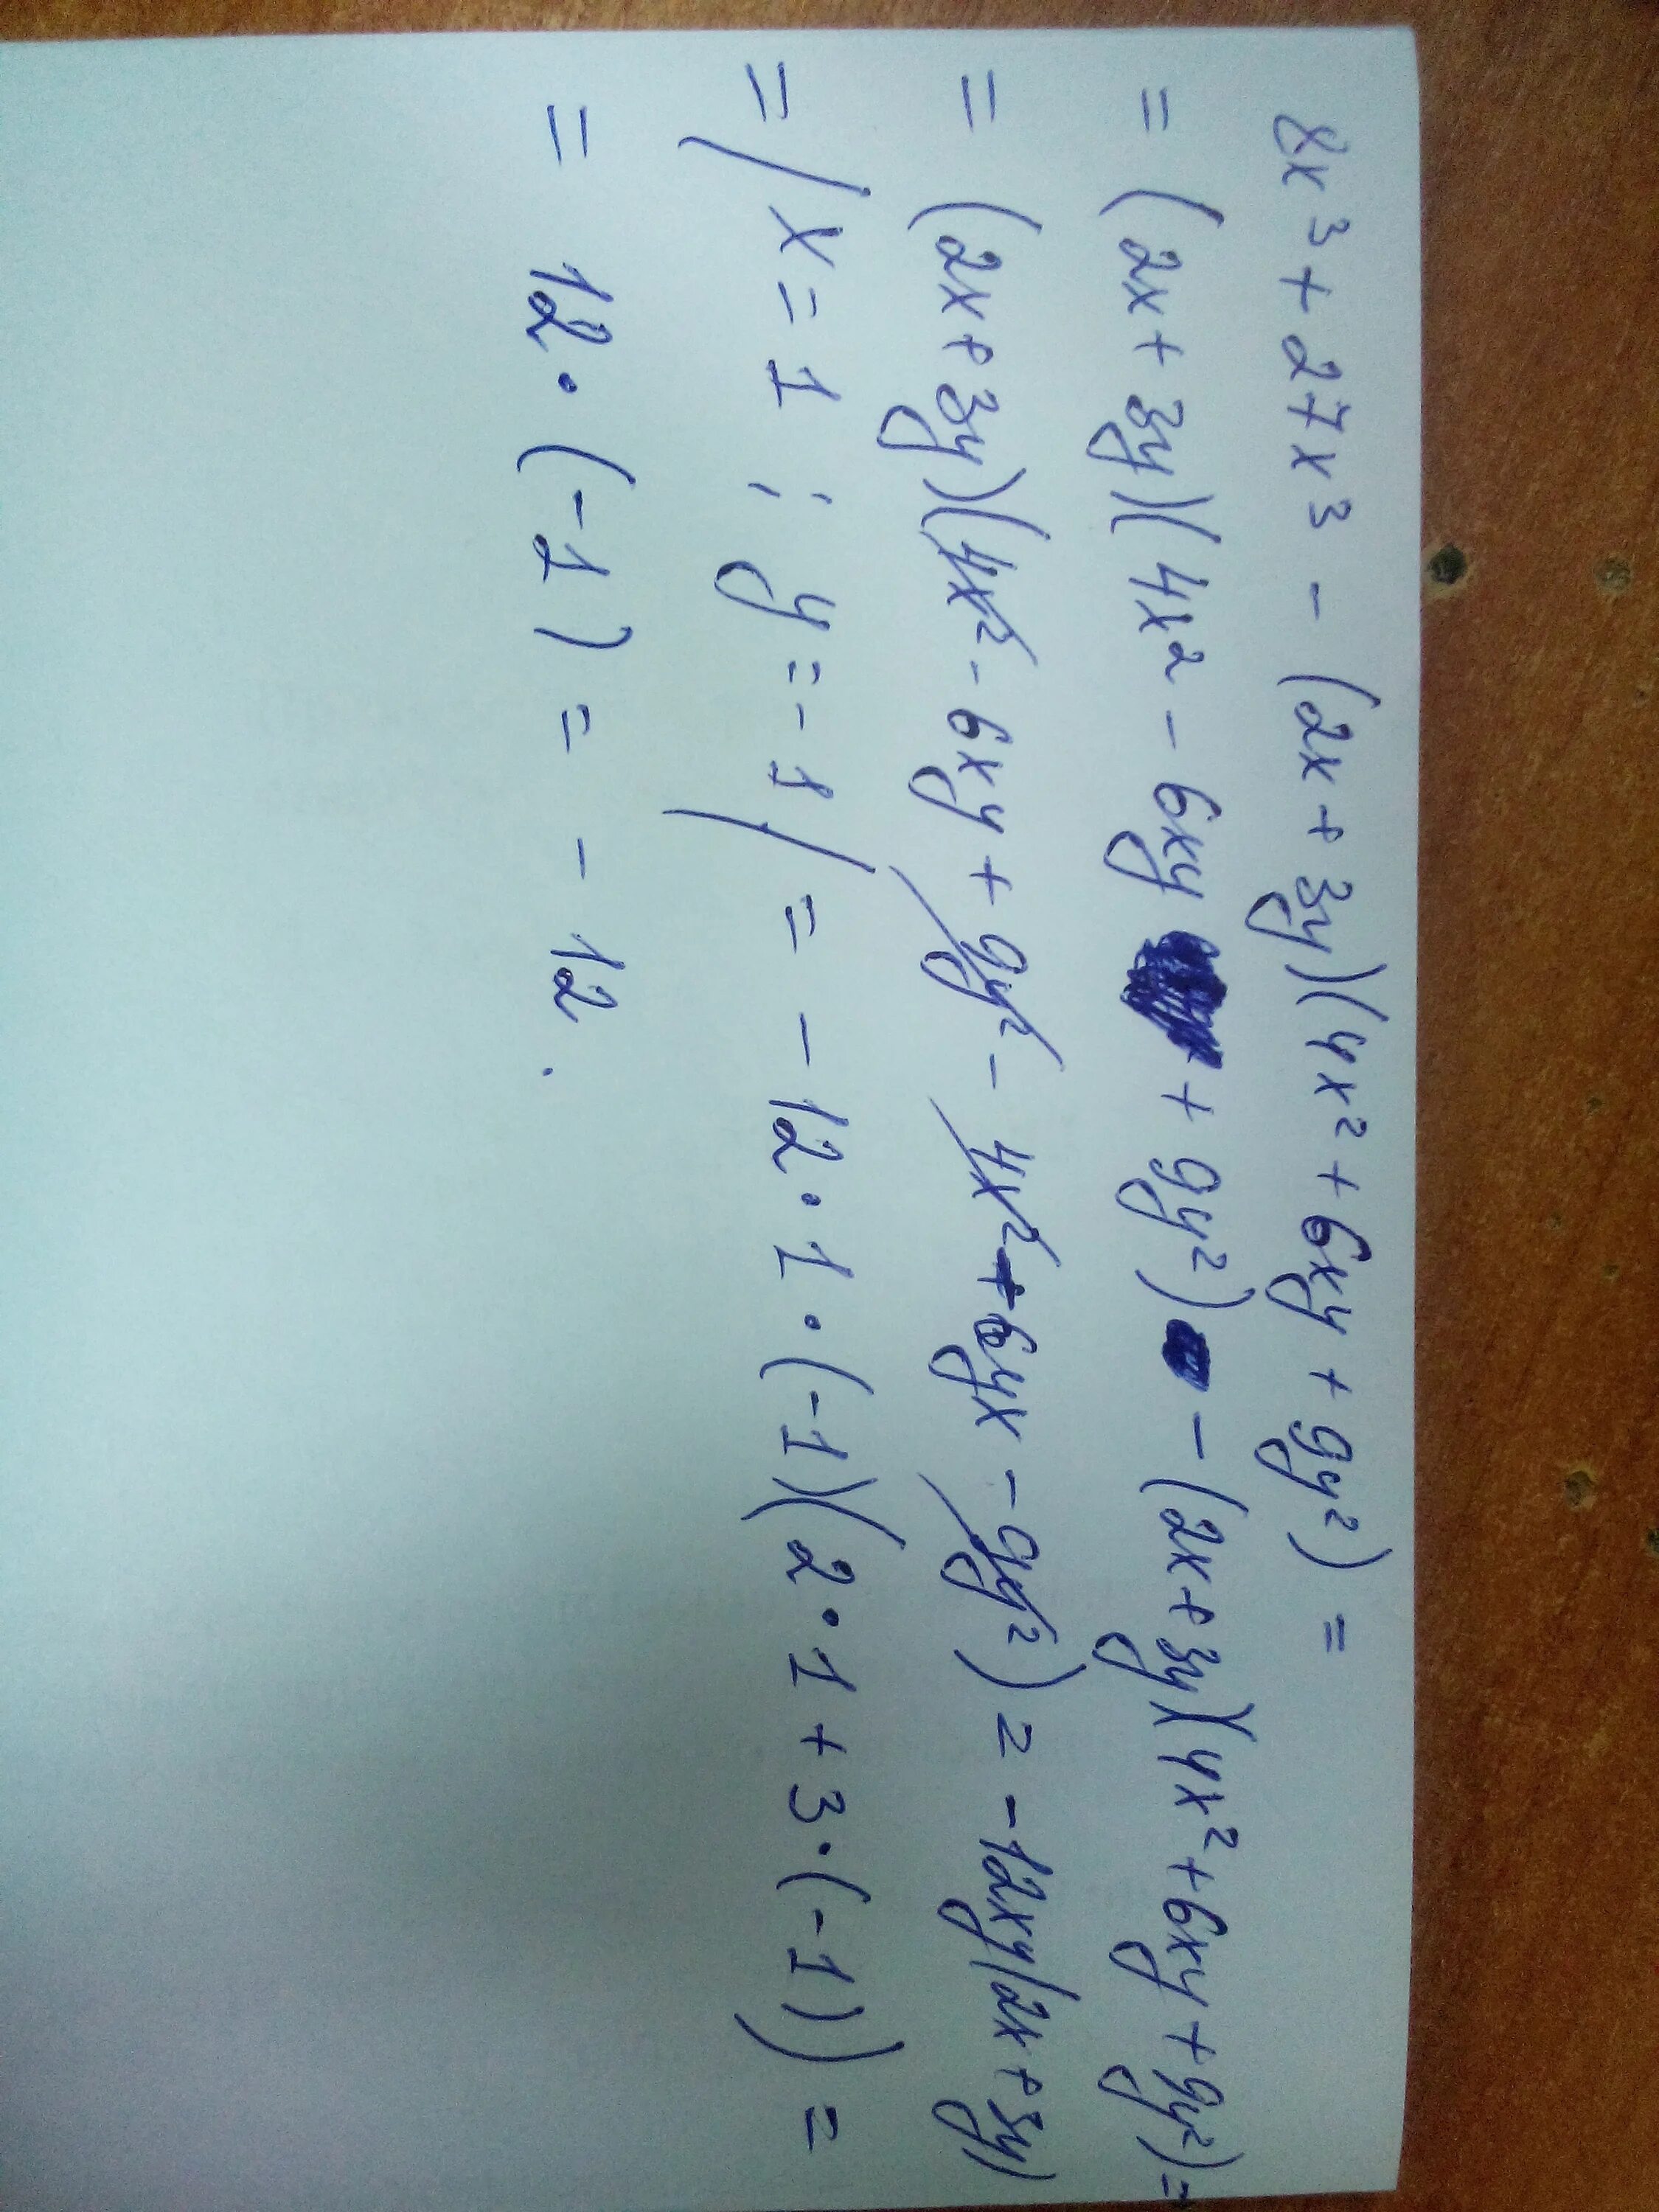 8x³ + 27x³ - (2x + 3y)(4x² + 6xy + 9y²) =
= (2x + 3y)(4x² - 6xy + 9y²) - (2x + 3y)(4x² + 6xy + 9y²) =
= (2x + 3y)(4x² - 6xy + 9y² - 4x² + 6yx - 9y²) = -12xy(2x + 3y)
= / x = 1 ; y = -1 / = - 12 · 1 · (-1)(2 · 1 + 3 · (-1)) =
= 12 · (-1) = - 12 .